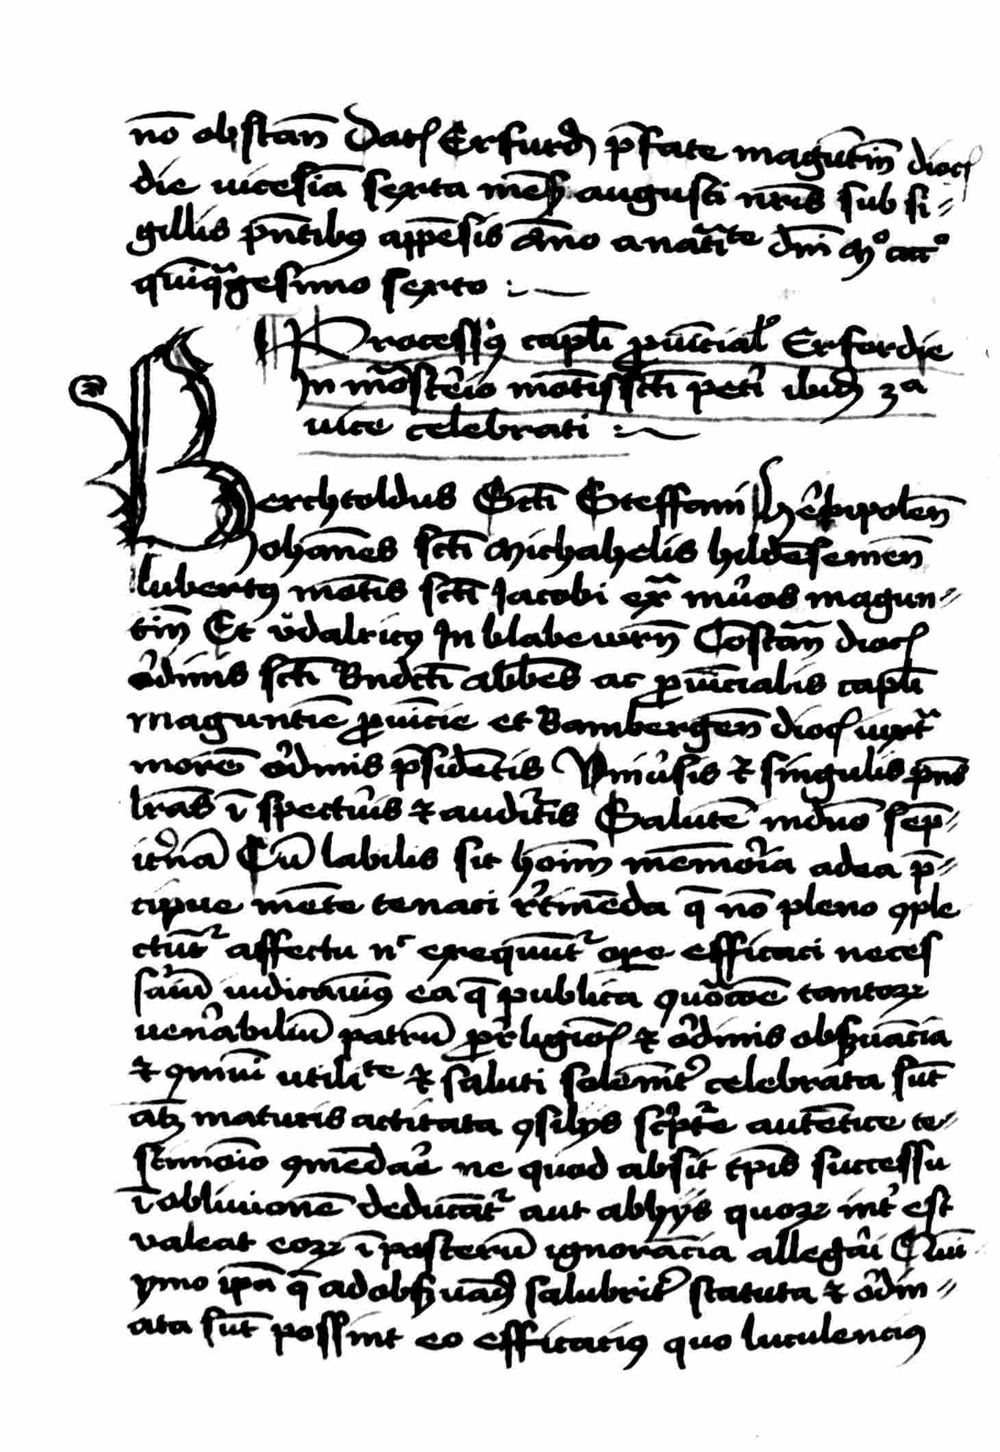 nō obstan̄ Dat Erfurd p̄fate magūtin̄ dioc
die vicesīa sexta mēs augusti nr̄is sub si-
gillis pn̄tibꝰ appēsis Āno a natīte dn̄i Mº cccº
quīquagesimo sexto :~
Processꝰ capl̄i ꝓuīcial Erfordie
In mōstīo mōtis sct̄i petī ibid 3ª
vice celebrati :~
Berchtoldus Sct̄i Steffani hēpipolen̄
Johānes sct̄i Michahelis hildēsemen̄
lubertꝰ mōtis sct̄i Jacobi ex̄ mūos magun-
tin̄ Et vͦdalricꝰ In blabewrn̄ Cōstān dioc
ōdinis sct̄i Bn̄dct̄i abb̄es ac ꝓuīcialis capl̄i
maguntīe ꝓuīcie et Bambergen̄ dioc iuxᵗ
morē ōdinis p̄sidētis Vniūsis ⁊ singulis pn̄s
lr̄as ī spectūis ⁊ audit̄is Salutē in dn̄o sēp-
it̄nā Cū labilis sit hoīm mēmoīa ad ea p̄-
cipue mēte tenaci r̄tinēda q̄ nō pleno ꝯple
ctūtᵣ affectu nᶜ exequūtᵣ oꝑe efficaci neces
sāiū iudicauimꝰ ea q̄ publica ꝯuōcōe tantoꝝ
venābiliū patrū ꝓ r̄ligiōis ⁊ ōdinis obẜuācia
⁊ ꝯmūi utilite ⁊ saluti solēnit̄ celebrata sūt
atqꝫ maturis actitata ꝯsilijs sc̄ptᵉ autētice te-
stimōio ꝯmēdāe ne quod absit tp̄is successu
ī obliuionē deducātᵣ aut ab hijs quoꝝ int̄ est
valeat eoꝝ ī posterū ignorācia allegāi Quī
ymo ip̄a q̄ ad obẜuād salubrit̄ statuta ⁊ ōdin-
ata sūt possint eo efficaciꝰ quo luculenciꝰ